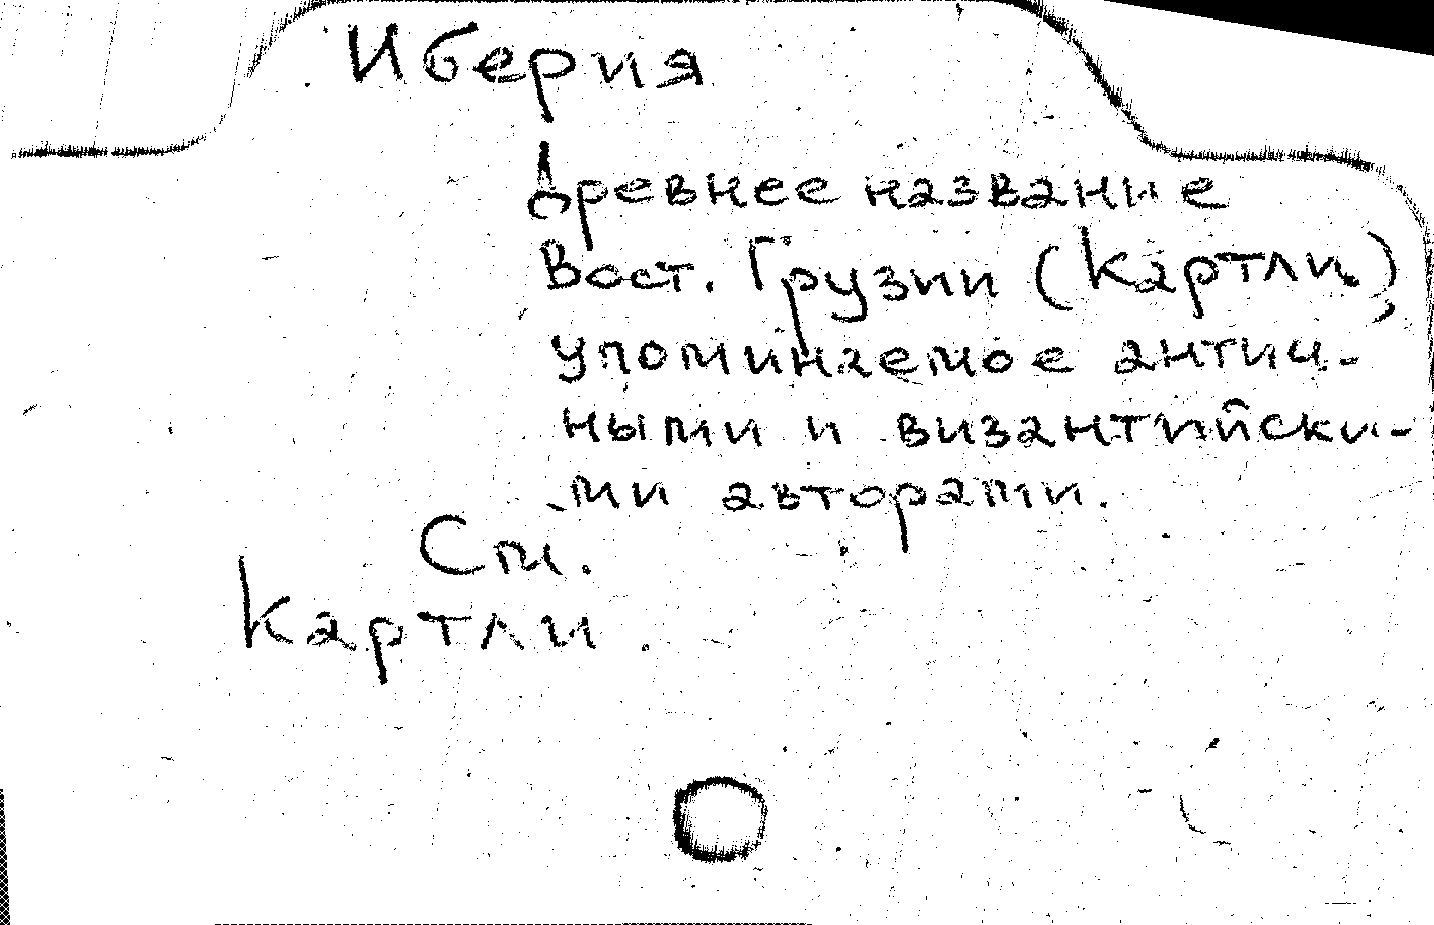 Иберия
Древнее название
Вост. Грузии (Картли),
упоминаемое антич-
ными и византийски-
ми авторами.
См.
Картли.